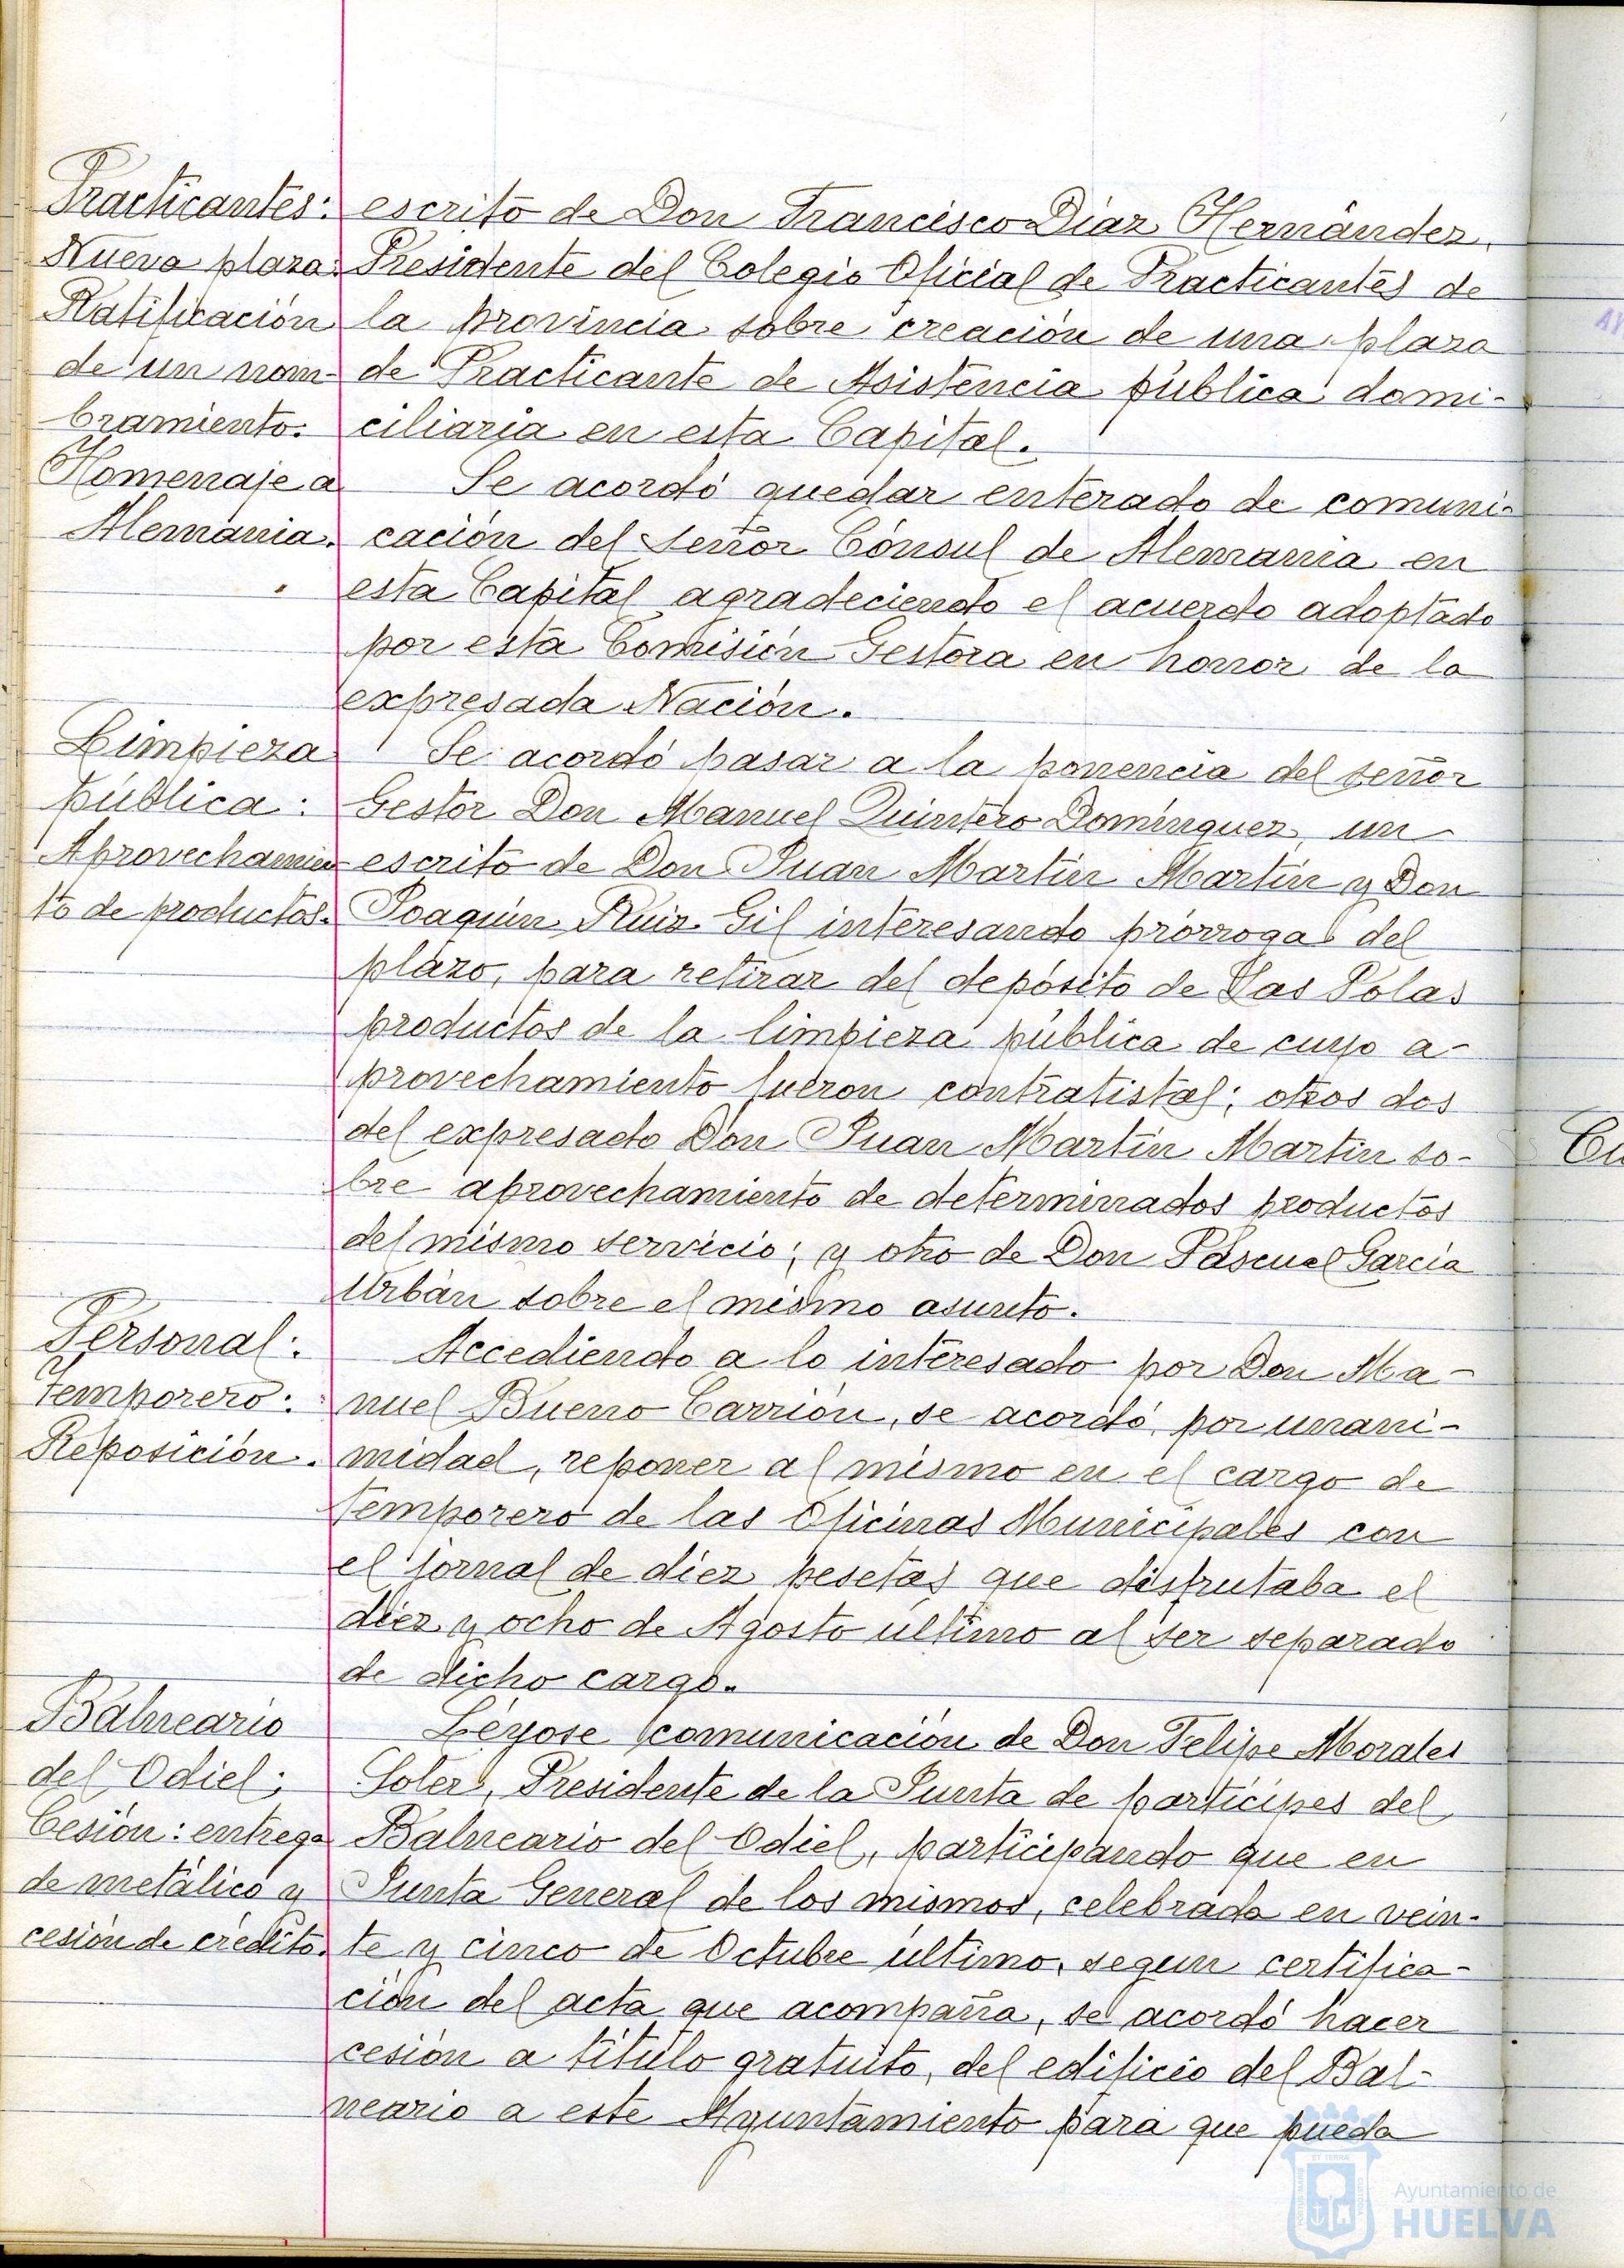 Practicantes:
Nueva plaza.
Ratificación
de un nom-
bramiento.
Homenaje a
Alemania.
escrito de Don Francisco Díaz Hernández,
Presidente del Colegio Oficial de Practicantes de
la provincia sobre creación de una plaza
de Practicante de Asistencia pública domi-
ciliaria en esta Capital.
Se acordó quedar enterado de comuni-
cación del Señor Cónsul de Alemania en
esta Capital agradeciendo el acuerdo adoptado
por esta Comisión Gestora en honor de la
expresada Nación.
Limpieza
pública:
Aprovechamien
to de productos.
Se acordó pasar a la ponencia del señor
Gestor Don Manuel Quintero Domínguez, un
escrito de Don Juan Martín Martín y Don
Joaquín Ruiz Gil interesando prórroga del
plazo, para retirar del depósito de Las Polas
productos de la limpieza pública de cuyo a-
provechamiento fueron contratistas; otros dos
del expresado Don Juan Martín Martín so-
bre aprovechamiento de determinados productos
del mismo servicio; y otro de Don Pascual García
Urbán sobre el mismo asunto.
Personal:
Temporero:
Reposición.
Accediendo a lo interesado por Don Ma-
nuel Bueno Carrión, se acordó, por unani-
midad, reponer al mismo en el cargo de
temporero de las Oficinas Municipales con
el jornal de diez pesetas que disfrutaba el
diez y ocho de Agosto último al ser separado
de dicho cargo.
Balneario
del Odiel;
Cesión: entrega
de metálico y
cesión de crédito.
Léyose comunicación de Don Felipe Morales
Soler, Presidente de la Junta de partícipes del
Balneario del Odiel, participando que en
Junta General de los mismos, celebrada en vein-
te y cinco de Octubre último, según certifica-
ción del acta que acompaña, se acordó hacer
cesión a título gratuito, del edificio del Bal-
neario a este Ayuntamiento para que pueda
Cu
Ayuntamiento de
HUELVA